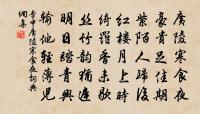 廣陵寒食夜
豪貴足佳期
紫陌人歸後
紅樓月上時
綺羅香未歇
絲竹韻猶遲
明日踏青興
輸他輕薄兒
李中廣陵寒食夜詞典
網集